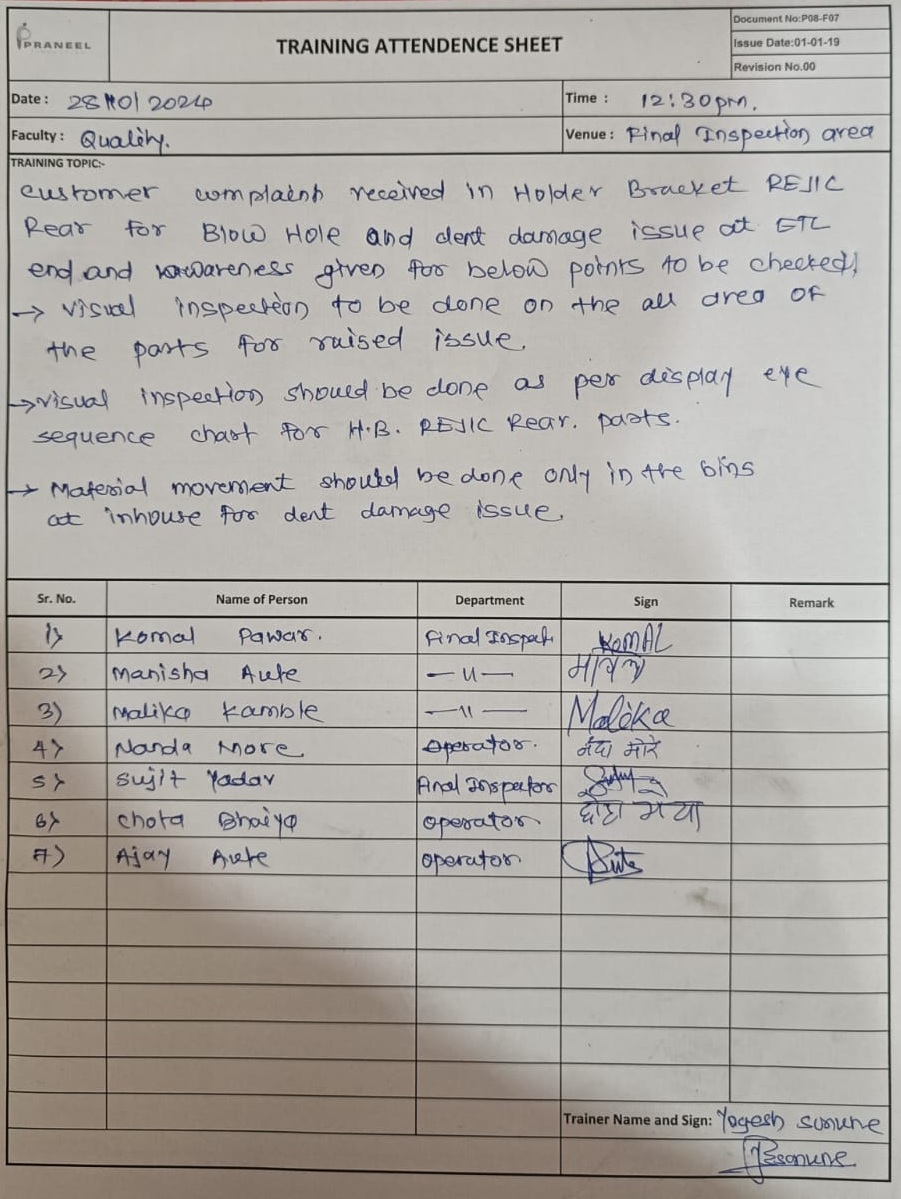 PRANEEL
TRAINING ATTENDENCE SHEET
Document No:P08-F07
Issue Date:01-01-19
Revision No.00
Date : 28/10/2024
Time : 12:30pm.
Faculty : Quality.
Venue : Final Inspection area
TRAINING TOPIC:-
Customer complaint received in Holder Bracket REJIC
Rear for Blow Hole and dent damage issue at GTL
end and awareness given for below points to be checked,
→ visual inspection to be done on the all area of
the parts for raised issue.
→ visual inspection should be done as per display eye
sequence chart for H.B. REJIC Rear. parts.
→ Material movement should be done only in the bins
at inhouse for dent damage issue.
Sr. No. Name of Person Department Sign Remark
1) Komal Pawar. Final Inspect. KOMAL
2) Manisha Aute —11—
3) Malika Kamble —11— Malika
4) Nanda More Operator. नंदा मोरे
5) Sujit Yadav Final Inspector
6) Chota Bhaiya Operator छोटा भया
7) Ajay Aute Operator
Trainer Name and Sign: Yogesh Sonune